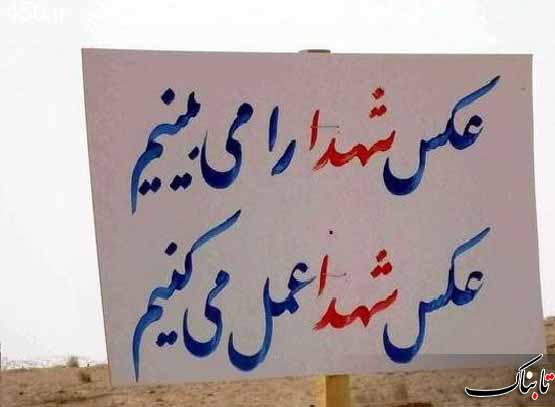 450.ir
عکس شهدا را می بینیم
عکس شهدا عمل می کنیم
تابناک